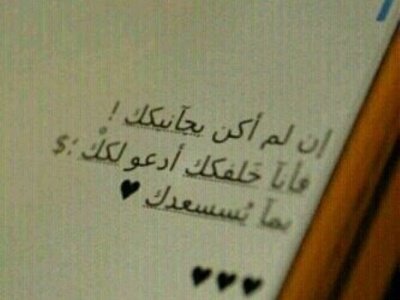 إن لم أكن بجآنبكك !
فأنآ خَلفكك أدعو لككْ ؛$
بمآ يُسسعدكك ♥
♥♥♥